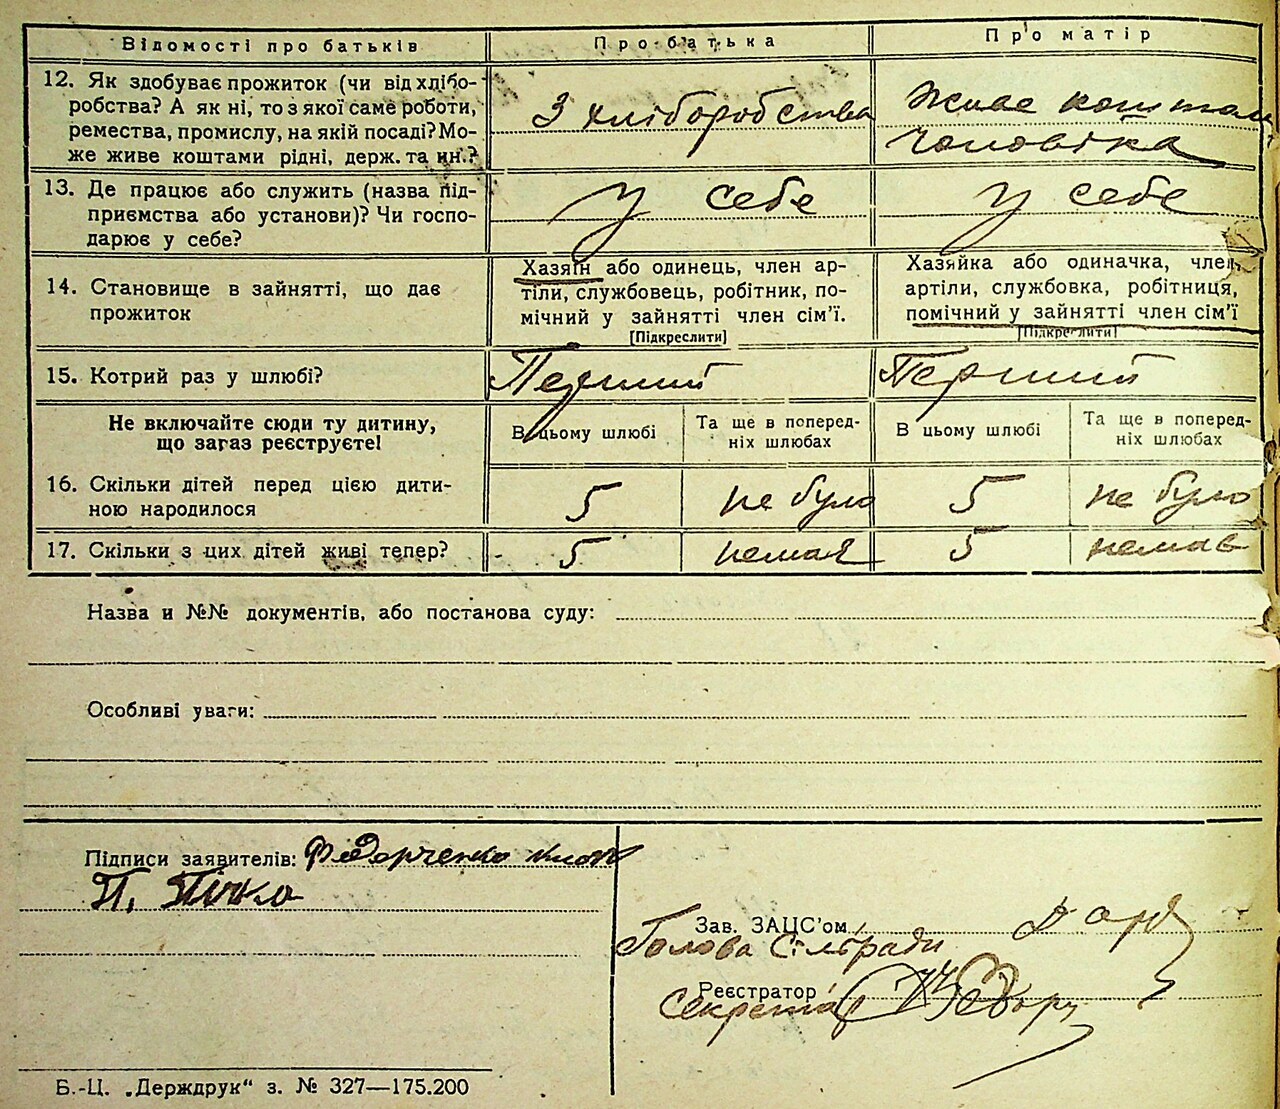 Відомості про батьків
Про батька
Про матір
12. Як здобуває прожиток (чи від хлібо-
робства? А як ні, то з якої саме роботи,
ремества, промислу, на якій посаді? Мо-
же живе коштами рідні, держ. та ин.?
З хліборобства
Живе коштами
чоловіка
13. Де працює або служить (назва під-
приємства або установи)? Чи госпо-
дарює у себе?
у себе
у себе
14. Становище в зайнятті, що дає
прожиток
Хазяїн або одинець, член ар-
тіли, службовець, робітник, по-
мічний у зайнятті член сім'ї.
[Підкреслити]
Хазяйка або одиначка, член
артіли, службовка, робітниця,
помічний у зайнятті член сім'ї
[Підкреслити]
15. Котрий раз у шлюбі?
Перший
Перший
Не включайте сюди ту дитину,
що зараз реєструєте!
В цьому шлюбі
Та ще в поперед-
ніх шлюбах
В цьому шлюбі
Та ще в поперед-
ніх шлюбах
16. Скільки дітей перед цією дити-
ною народилося
5
не було
5
не було
17. Скільки з цих дітей живі тепер?
5
немає
5
немає
Назва и №№ документів, або постанова суду:
Особливі уваги:
Підписи заявителів: Федорченко
П. Пічка
Зав. ЗАЦС'ом
Голова Сільради
Реєстратор
Секретар
Б.-Ц. „Держдрук“ з. № 327—175.200